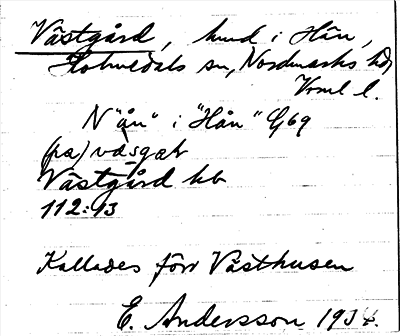 Västgård, hmd i Hån,
Holmedals sn, Nordmarks hd,
Vrml l.
N "ån" i "Hån" G69
(pa) väsgaṙ
Västgård hb
112:13
Kallades förr Västhusen
E. Andersson 1934.